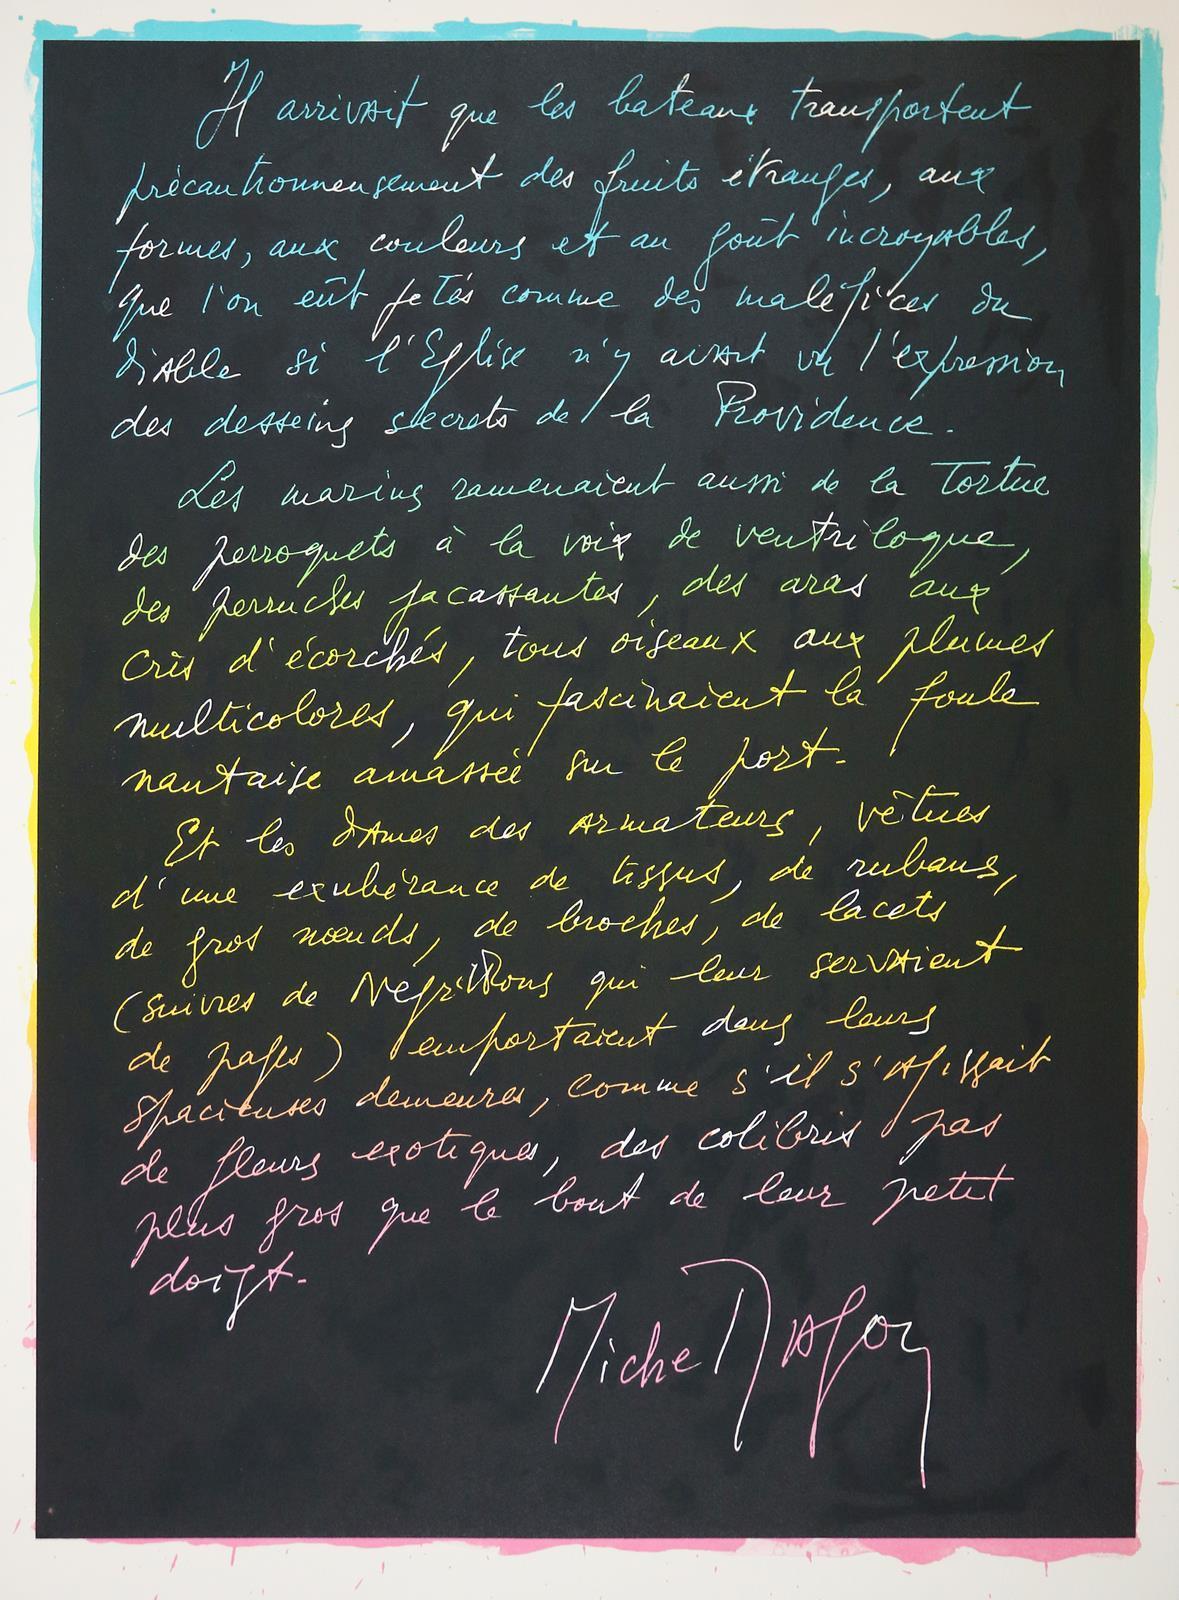 Il arrivait que les bateaux transportent
précautionneusement des fruits étranges, aux
formes, aux couleurs et au goût incroyables,
que l'on eût jetés comme des maléfices du
diable si l'Eglise n'y avait vu l'expression
des desseins secrets de la Providence.
Les marins ramenaient aussi de la Tortue
des perroquets à la voix de ventriloque,
des perruches jacassantes, des aras aux
cris d'écorchés, tous oiseaux aux plumes
multicolores, qui fascinaient la foule
nantaise amassée sur le port.
Et les dames des armateurs, vêtues
d'une exubérance de tissus, de rubans,
de gros nœuds, de broches, de lacets
(suivies de Négrillons qui leur servaient
de pages) emportaient dans leurs
spacieuses demeures, comme s'il s'agissait
de fleurs exotiques, des colibris pas
plus gros que le bout de leur petit
doigt.
Michel Ragon